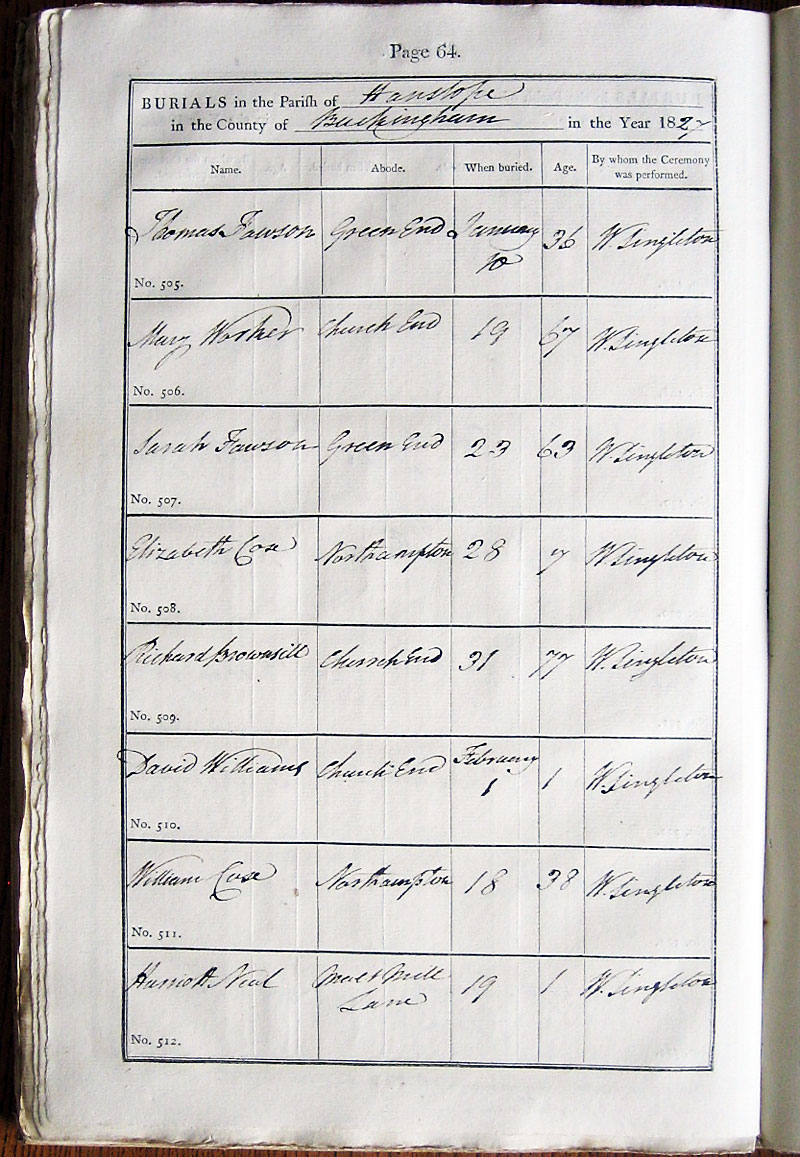 Page 64.
BURIALS in the Parish of Hanslope
in the County of Buckingham in the Year 1827
Name. Abode. When buried. Age. By whom the Ceremony was performed.
Thomas Fawson Green End January 10 36 W. Singleton
No. 505.
Mary Worker Church End 19 67 W. Singleton
No. 506.
Sarah Fawson Green End 23 63 W. Singleton
No. 507.
Elizabeth Cox Northampton 28 7 W. Singleton
No. 508.
Richard Brownsill Church End 31 77 W. Singleton
No. 509.
David Williams Church End February 1 1 W. Singleton
No. 510.
William Cox Northampton 18 38 W. Singleton
No. 511.
Harriott Neal Malt Mill Lane 19 1 W. Singleton
No. 512.